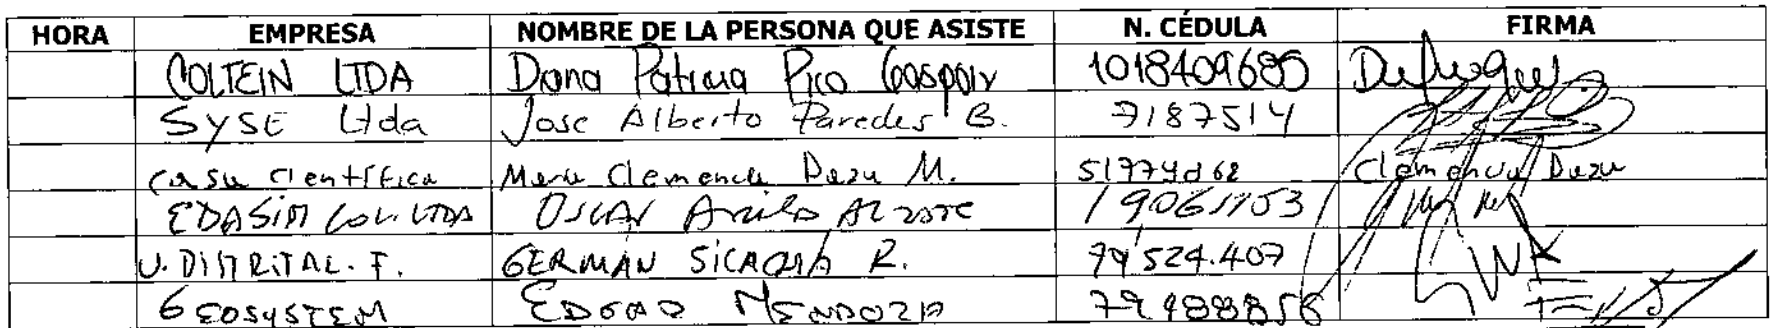 HORA EMPRESA NOMBRE DE LA PERSONA QUE ASISTE N. CÉDULA FIRMA
COLTEIN LTDA Diana Patricia Pico Gaspar 1018409680
SYSE Ltda Jose Alberto Paredes B. 7187514
Casa Científica Maria Clemencia Daza M. Clemencia Daza
EDASIM COL. LTDA OSCAR Avila ALZATE
U. DISTRITAL. F. GERMÁN R. 79'524.407
GEOSYSTEM EDGAR MENDOZA